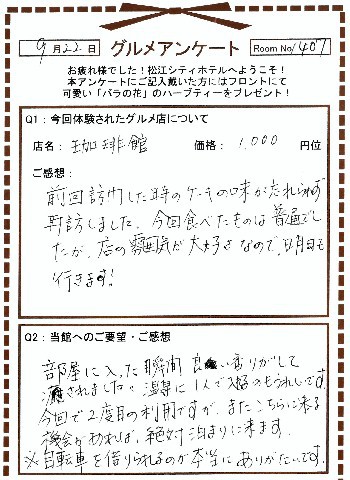 9月22日 グルメアンケート Room No/407
お疲れ様でした！松江シティホテルへようこそ！
本アンケートにご記入戴いた方にはフロントにて
可愛い「バラの花」のハーブティーをプレゼント！
Q1：今回体験されたグルメ店について
店名： 珈琲館 価格： 1,000 円位
ご感想：
前回訪門した時のケーキの味が忘れられず
再訪しました。今回食べたものは普通でし
たが、店の雰囲気が大好きなので、明日も
行きます！
Q2：当館へのご要望・ご感想
部屋に入った瞬間良い香りがして
癒されました。温泉に1人で入れるのもうれしいです。
今回で2度目の利用ですが、またこちらに来る
機会があれば、絶対泊まりに来ます。
※自転車を借りられるのが本当にありがたいです。